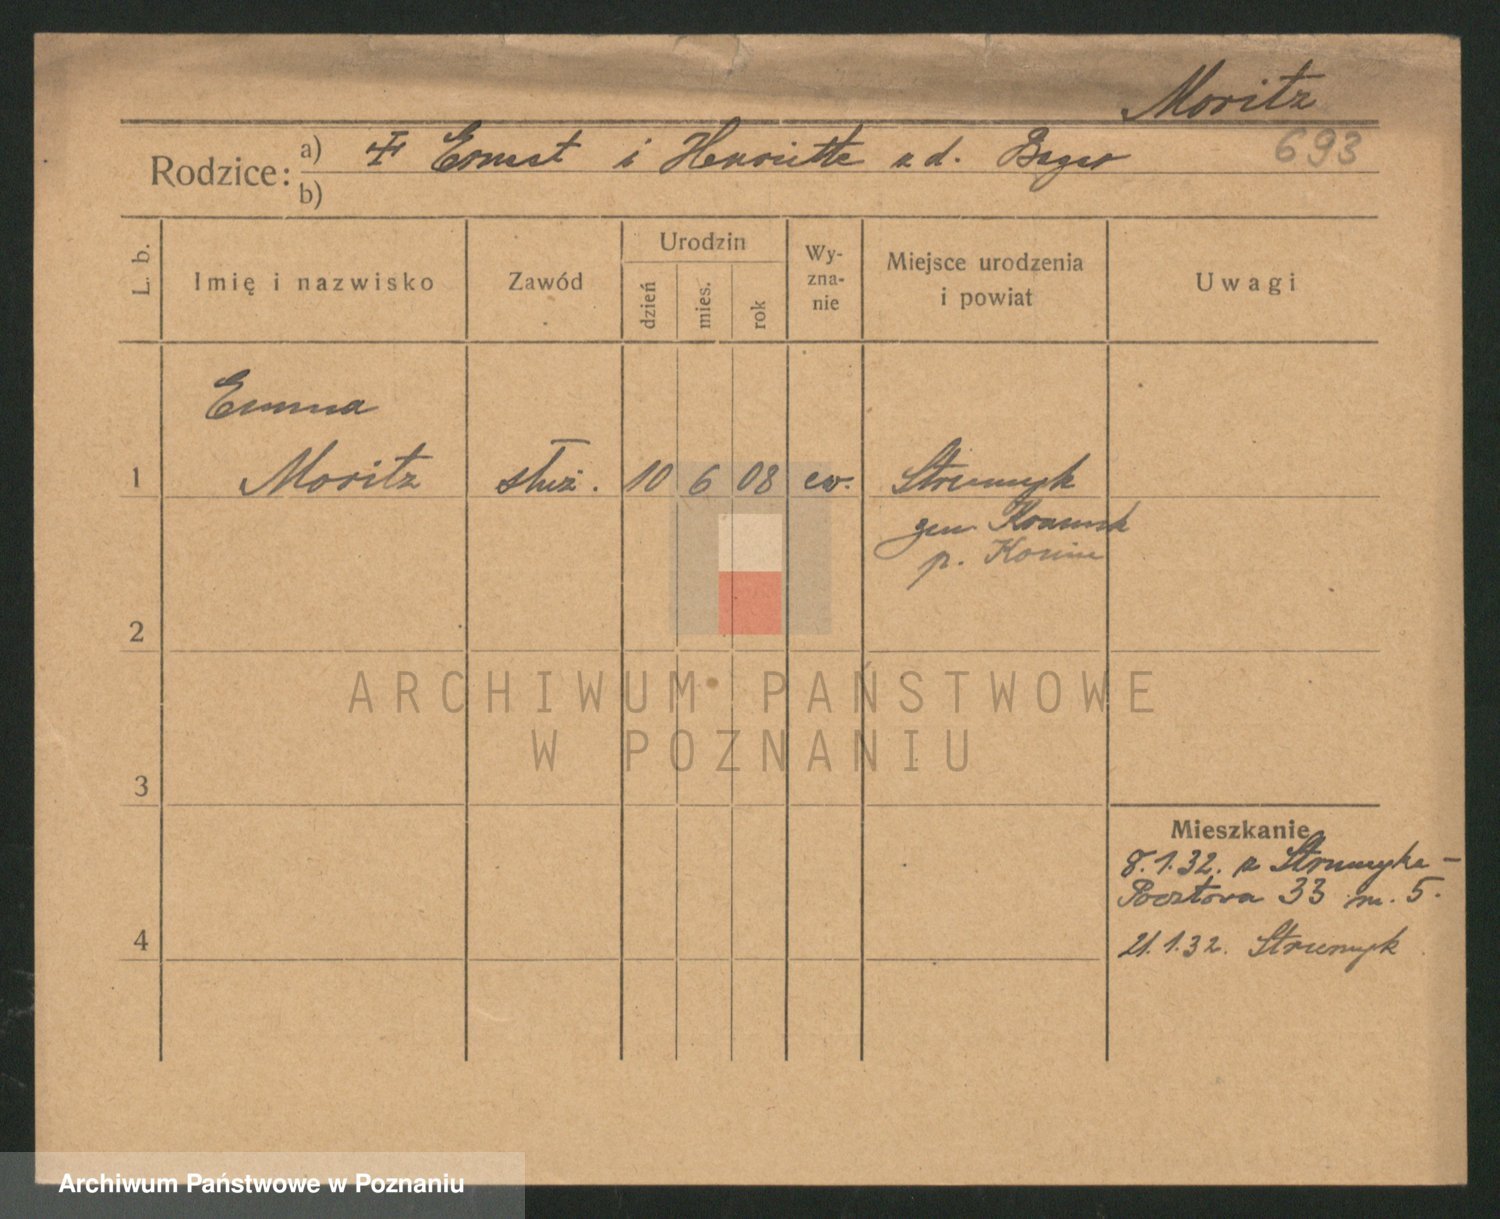 Moritz
693
Rodzice: a) Ernest i Henriette z d.
b)
L. b.
Imię i nazwisko
Zawód
Urodzin
dzień
mies.
rok
Wy-
zna-
nie
Miejsce urodzenia
i powiat
Uwagi
Emma
1 Moritz służ. 10 6 08 ew. Strumyk
gm.
p.
2
3
4
Mieszkanie
8.1.32. z Strumyka -
Pocztowa 33 m. 5.
21.1.32. Strumyk
ARCHIWUM PAŃSTWOWE
W POZNANIU
Archiwum Państwowe w Poznaniu